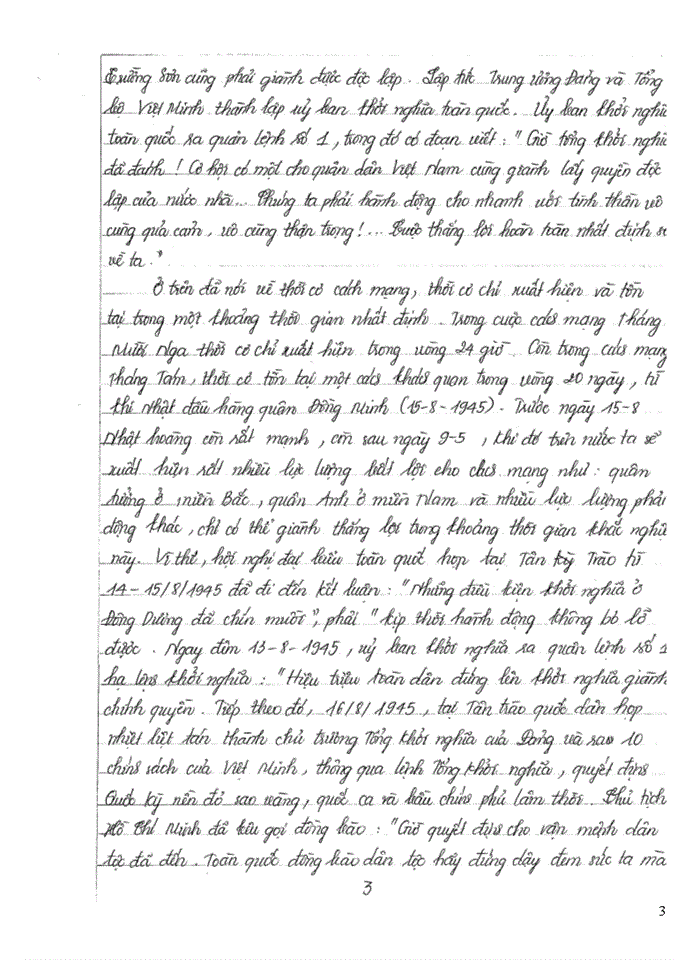 Trường Sơn cũng phải giành được độc lập. Lập tức Trung ương Đảng và Tổng
bộ Việt Minh thành lập uỷ ban khởi nghĩa toàn quốc. Ủy ban khởi nghĩa
toàn quốc ra quân lệnh số 1, trong đó có đoạn viết: "Giờ tổng khởi nghĩa
đã đánh! Cơ hội có một cho quân dân Việt Nam cùng giành lấy quyền độc
lập của nước nhà... Chúng ta phải hành động cho nhanh với tinh thần vô
cùng quả cảm, vô cùng thận trọng!... Cuộc thắng lợi hoàn toàn nhất định sẽ
về ta."
Ở trên đã nói về thời cơ cách mạng, thời cơ chỉ xuất hiện và tồn
tại trong một khoảng thời gian nhất định. Trong cuộc cách mạng Tháng
Mười Nga thời cơ chỉ xuất hiện trong vòng 24 giờ. Còn trong cách mạng
Tháng Tám, thời cơ tồn tại một cách khách quan trong vòng 20 ngày, từ
khi Nhật đầu hàng quân Đồng Minh (15-8-1945). Trước ngày 15-8
Nhật hoàng còn rất mạnh, còn sau ngày 9-5, khi đó trên nước ta sẽ
xuất hiện rất nhiều lực lượng bất lợi cho cách mạng như: quân
tưởng ở miền Bắc, quân Anh ở miền Nam và nhiều lực lượng phản
động khác, chỉ có thể giành thắng lợi trong khoảng thời gian khắc nghiệt
này. Vì thế, hội nghị đại biểu toàn quốc họp tại Tân Kỳ Trào từ
14-15/8/1945 đã đi đến kết luận: "Những điều kiện khởi nghĩa ở
Đông Dương đã chín muồi", phải "kịp thời hành động không bỏ lỡ
được. Ngay đêm 13-8-1945, uỷ ban khởi nghĩa ra quân lệnh số 1
hạ lệnh khởi nghĩa: "Hiệu triệu toàn dân đứng lên khởi nghĩa giành
chính quyền. Tiếp theo đó, 16/8/1945, tại Tân trào quốc dân họp
nhiệt liệt tán thành chủ trương Tổng khởi nghĩa của Đảng và sao 10
chính sách của Việt Minh, thông qua lệnh Tổng khởi nghĩa, quyết định
Quốc kỳ nền đỏ sao vàng, quốc ca và bầu chính phủ lâm thời. Chủ tịch
Hồ Chí Minh đã kêu gọi đồng bào: "Giờ quyết định cho vận mệnh dân
tộc đã đến. Toàn quốc đồng bào dân tộc hãy đứng dậy đem sức ta mà
3
3